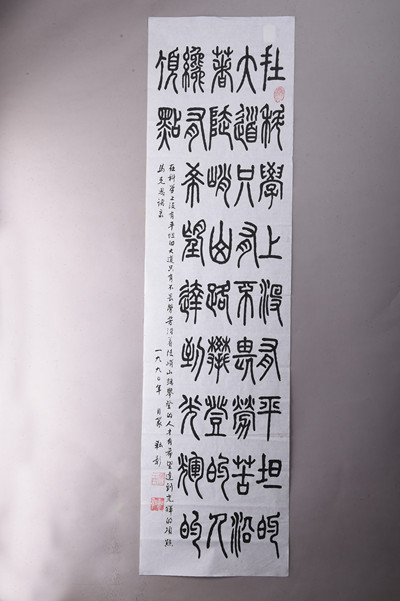 在科學上没有平坦的
大道只有不畏勞苦沿
著陡峭山路攀登的人
纔有希望達到光輝的
頂點
在科学上没有平坦的大道只有不畏劳苦沿着陡峭山路攀登的人才有希望達到光輝的顶點
馬克思语录
一九九〇年